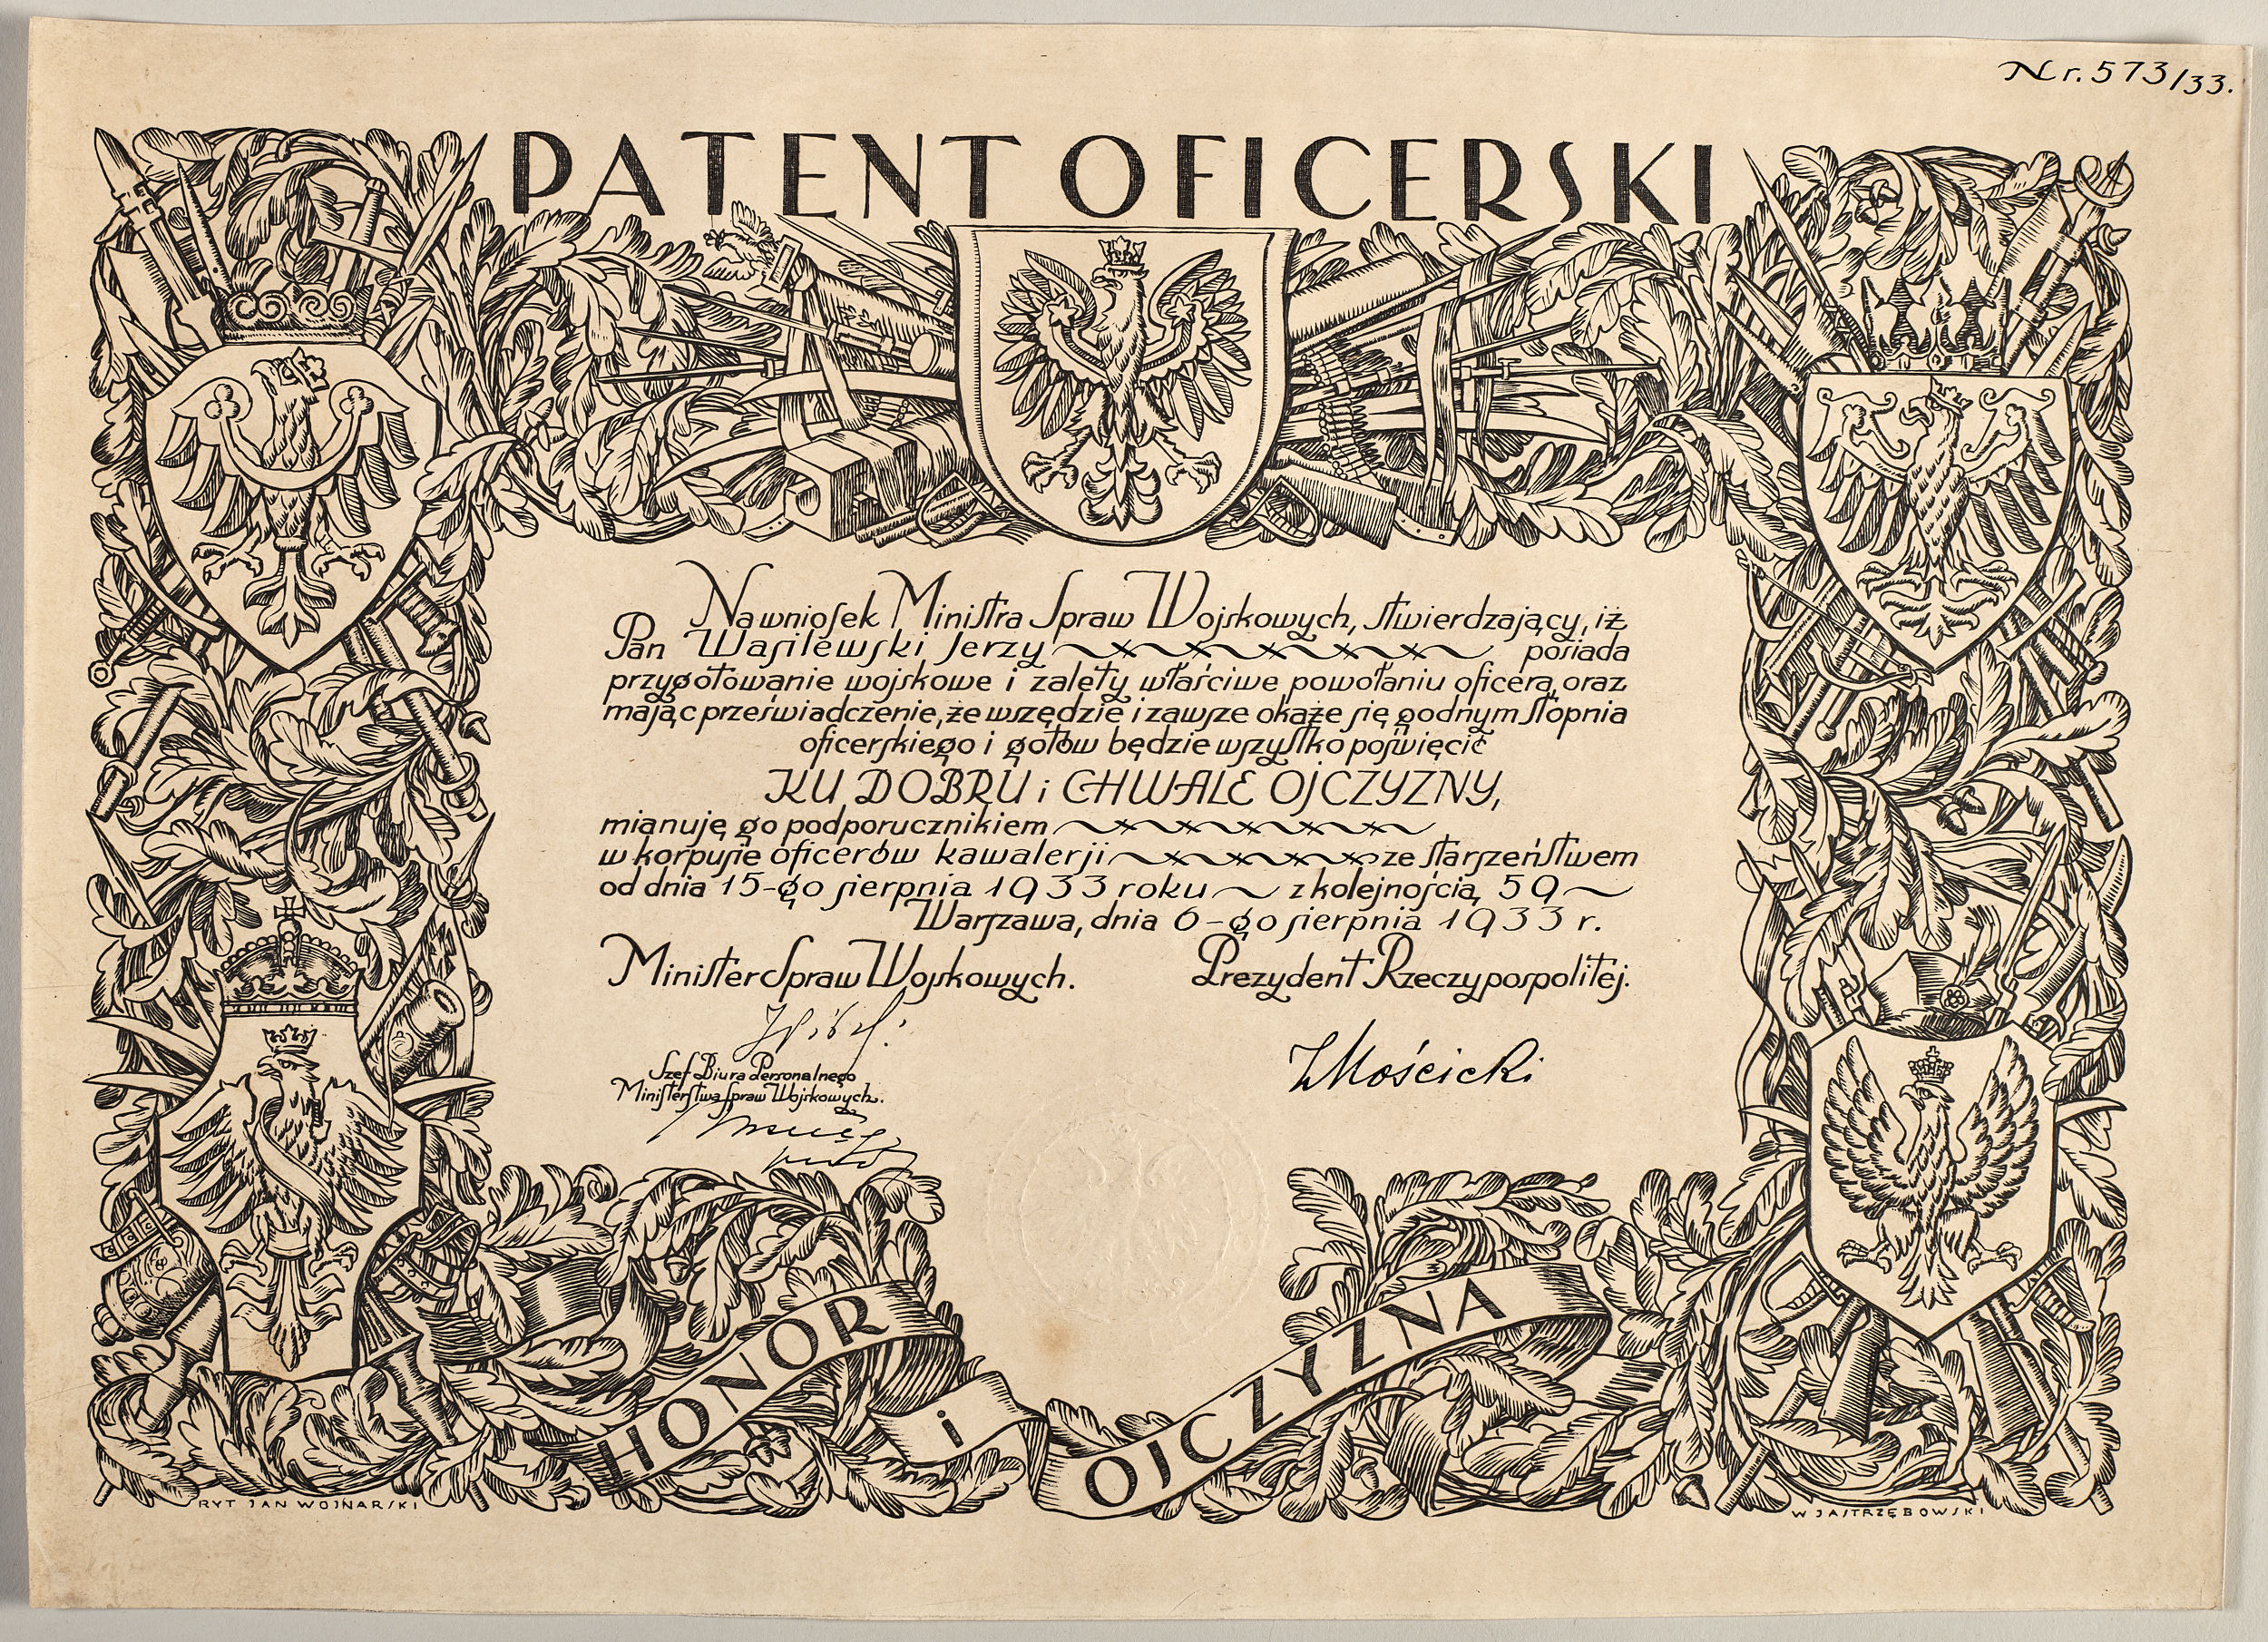 Nr. 573/33.
PATENT OFICERSKI
Na wniosek Ministra Spraw Wojskowych, stwierdzający, iż
Pan Wasilewski Jerzy posiada
przygotowanie wojskowe i zalety właściwe powołaniu oficera, oraz
mając przeświadczenie, że wszędzie i zawsze okaże się godnym stopnia
oficerskiego i gotów będzie wszystko poświęcić
KU DOBRU i CHWALE OJCZYZNY,
mianuję go podporucznikiem
w korpusie oficerów kawalerji ze starszeństwem
od dnia 15-go sierpnia 1933 roku z kolejnością 59
Warszawa, dnia 6-go sierpnia 1933 r.
Minister Spraw Wojskowych. Prezydent Rzeczypospolitej.
IMościcki
Szef Biura Personalnego
Ministerstwa Spraw Wojskowych.
HONOR i OJCZYZNA
RYT JAN WOJNARSKI
W JASTRZĘBOWSKI